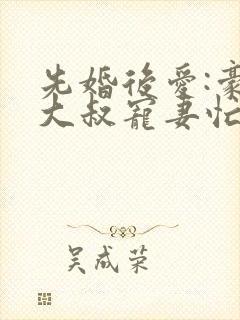 先婚後愛:豪
大叔寵妻忙
吴成荣